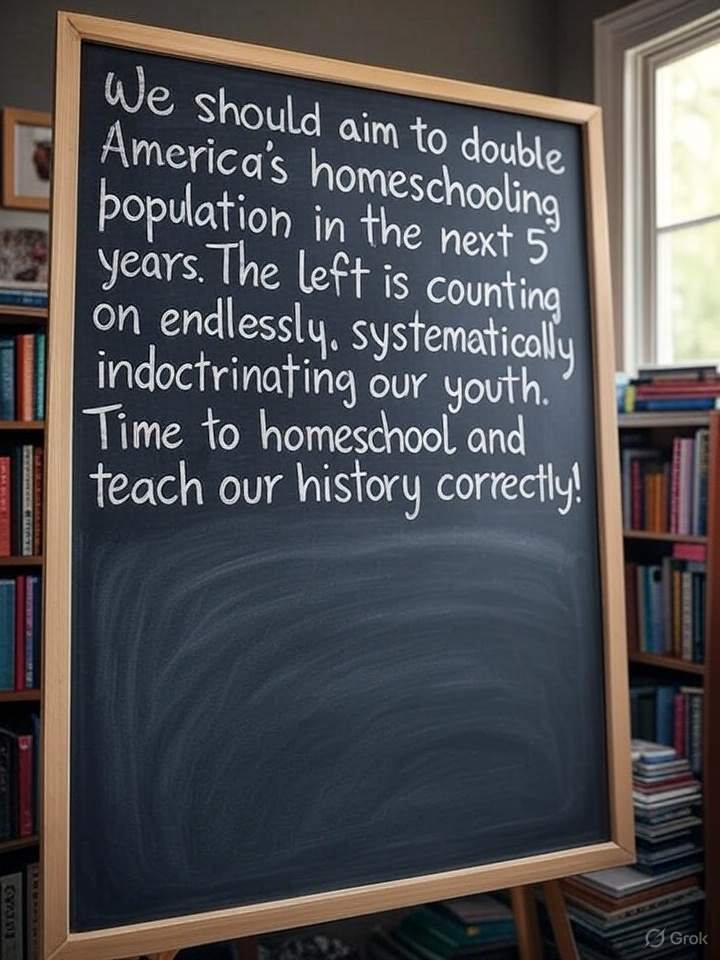 We should aim to double
America's homeschooling
population in the next 5
years. The left is counting
on endlessly, systematically
indoctrinating our youth.
Time to homeschool and
teach our history correctly!
Grok